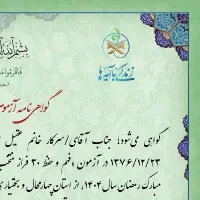 زندگی با آیه‌ها
گواهی نامه آزمو
گواهی می‌شود؛ جناب آقای/سرکار خانم عقیل
۱۳۷۶/۱۲/۲۳ در آزمون ، فهم و حفظ ۳۰ فراز منتخب
مبارک رمضان سال ۱۴۰۴، از استان چهارمحال و بختیاری